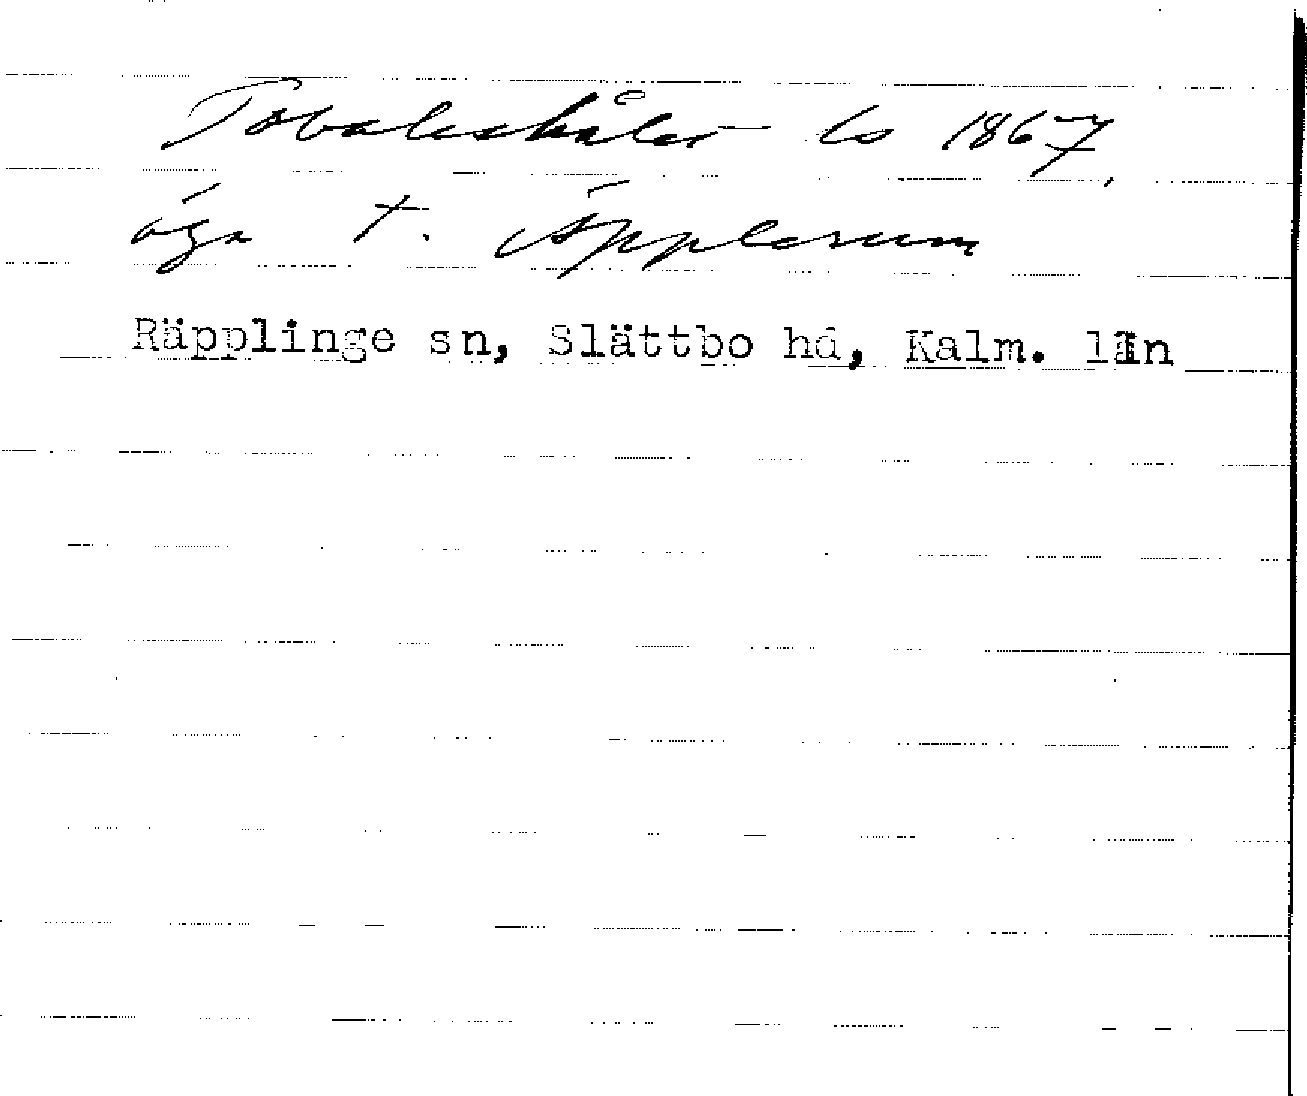 Tobakshålet ls 1867,
äga t. Äpplerum
Räpplinge sn, Slättbo hd, Kalm. län